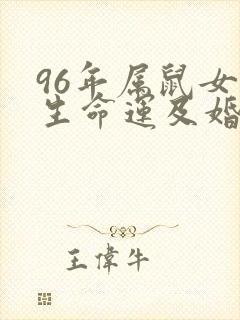 96年属鼠女
生命运及婚
王偉牛